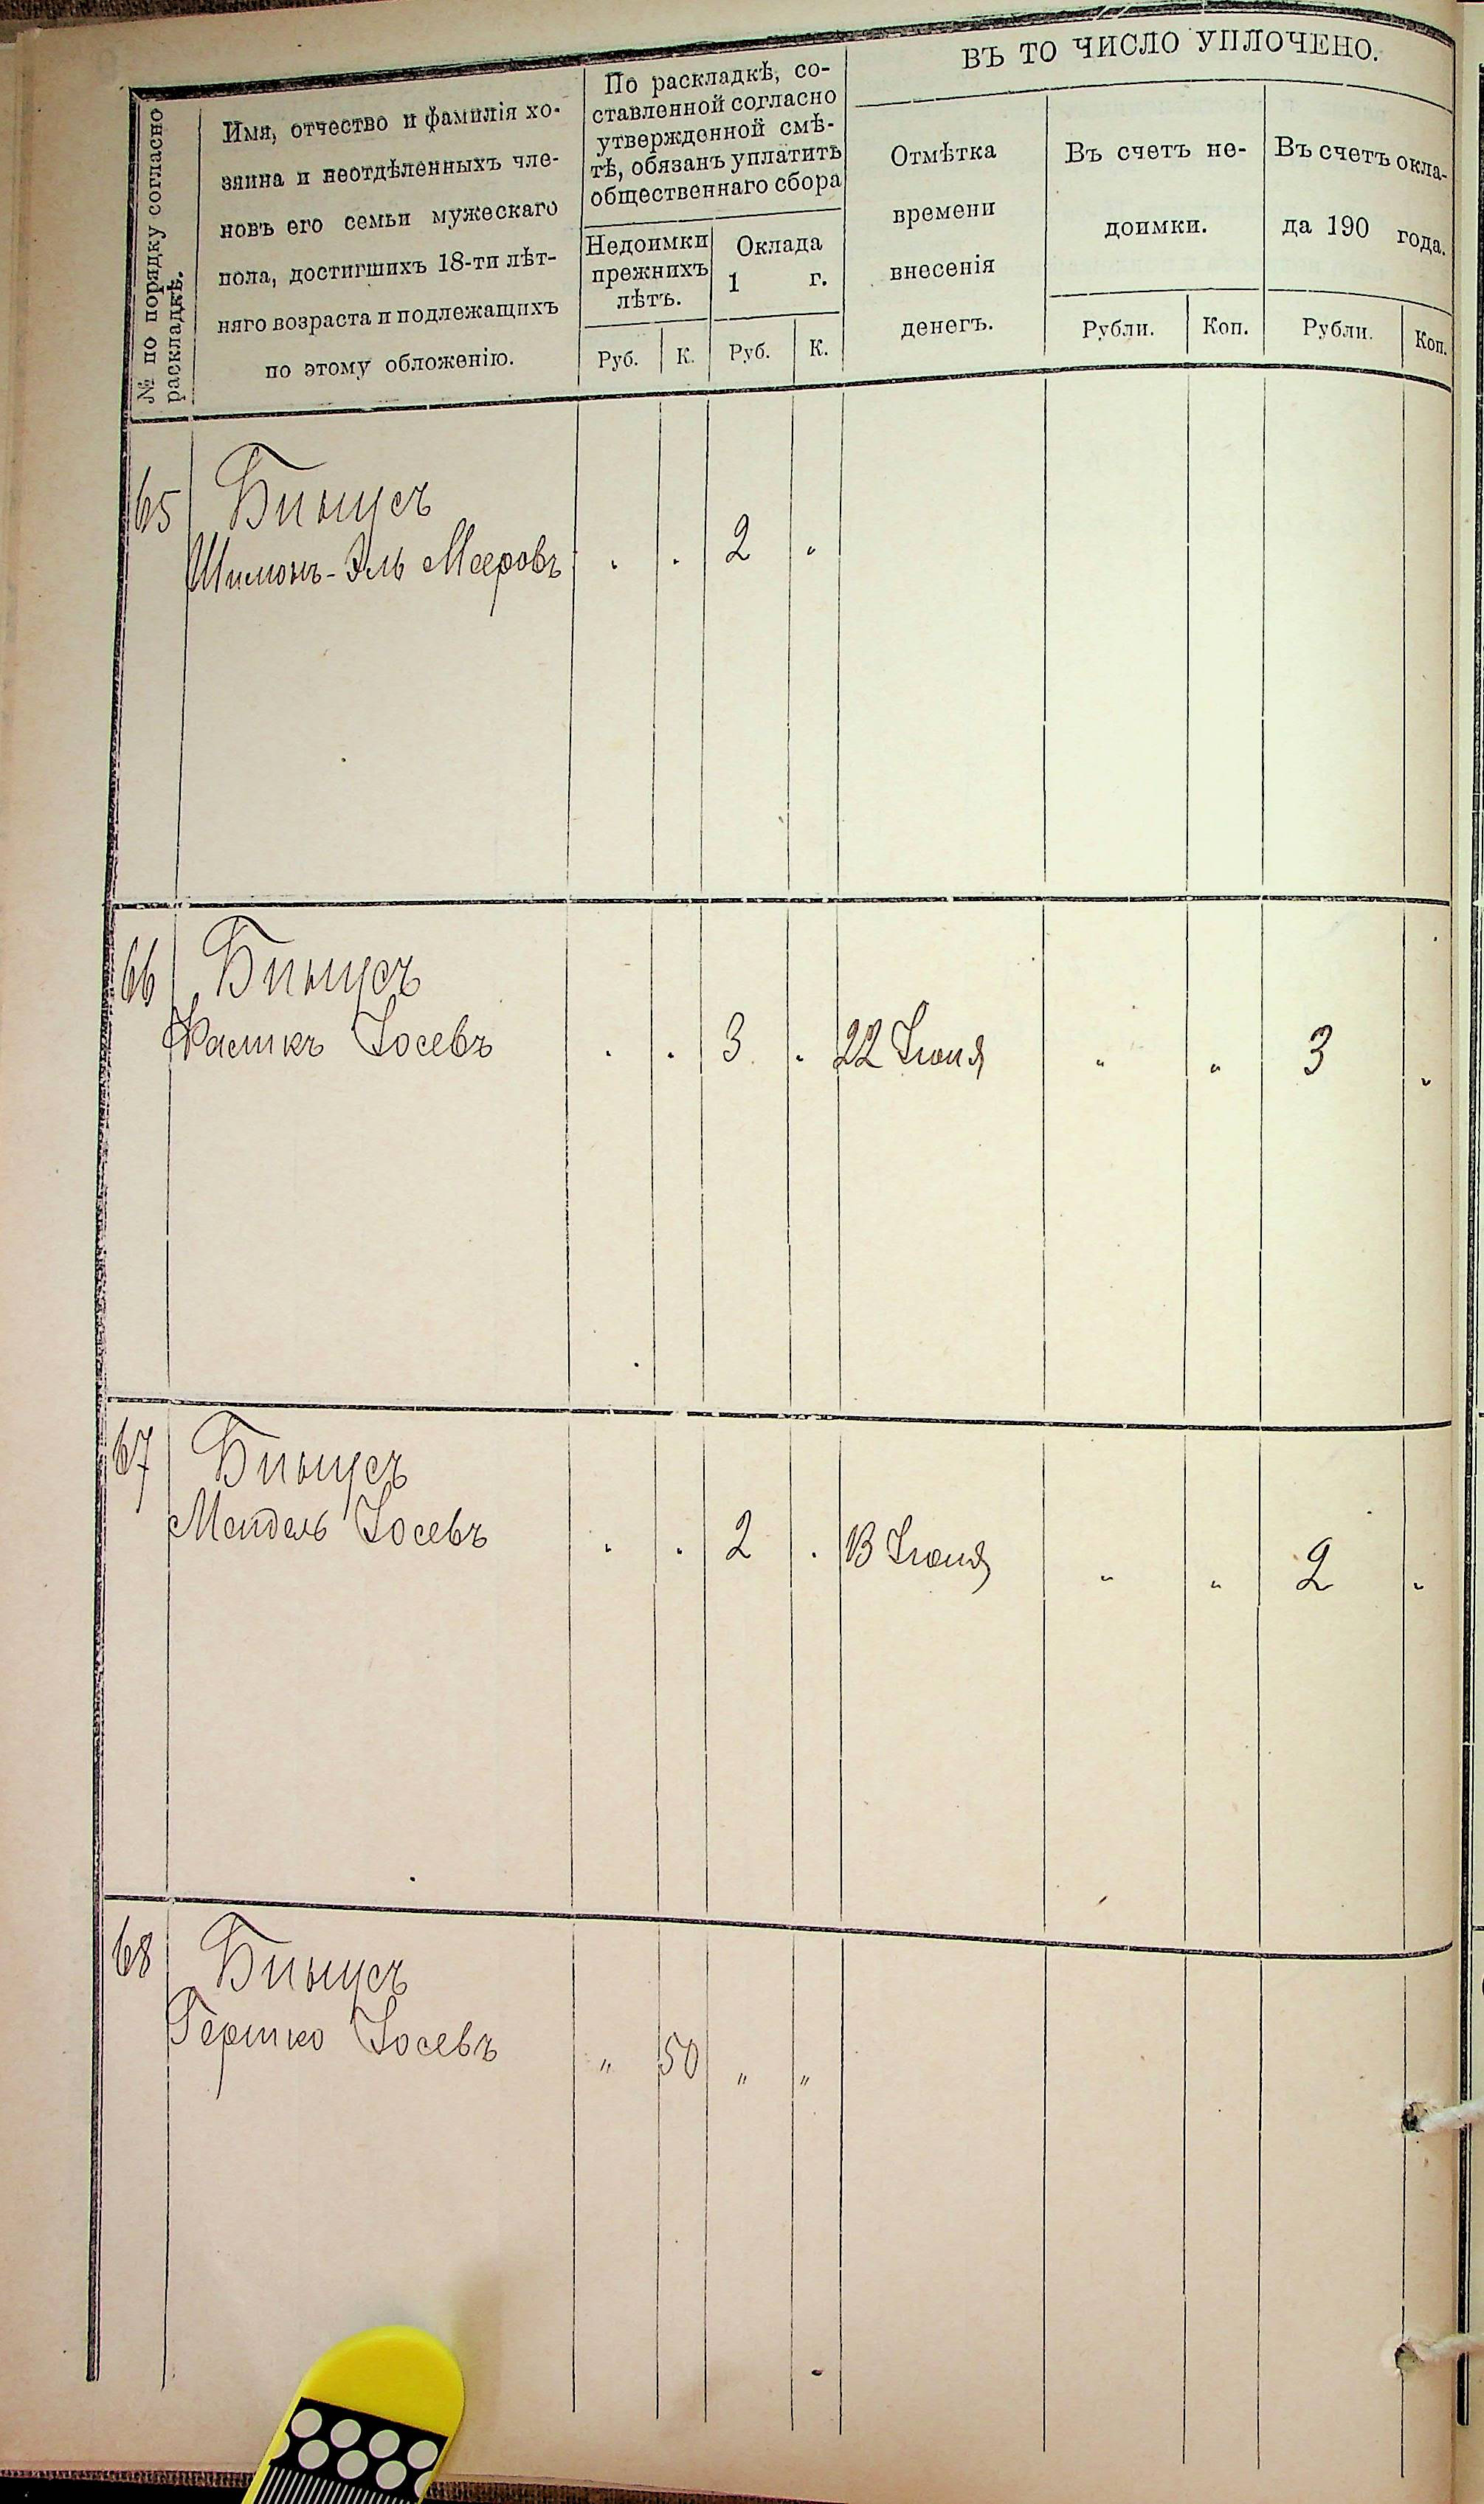 № по порядку согласно
раскладкѣ.
Имя, отчество и фамилія хо-
зяина и неотдѣленныхъ чле-
новъ его семьи мужескаго
пола, достигшихъ 18-ти лѣт-
няго возраста и подлежащихъ
по этому обложенію.
По раскладкѣ, со-
ставленной согласно
утвержденной смѣ-
тѣ, обязанъ уплатить
общественнаго сбора
Недоимки
прежнихъ
лѣтъ.
Оклада
1 г.
Руб. К. Руб. К.
ВЪ ТО ЧИСЛО УПЛОЧЕНО.
Отмѣтка
времени
внесенія
денегъ.
Въ счетъ не-
доимки.
Въ счетъ окла-
да 190 года.
Рубли. Коп. Рубли. Коп.
65 Биньусъ
Шимонъ-Эль Мееровъ 2 "
66 Биньусъ
Іосевъ 3 22 Іюня " " 3 "
67 Биньусъ
Мендель Іосевъ 2 13 Іюня " " 2 "
68 Биньусъ
Гершко Іосевъ " 50 " "